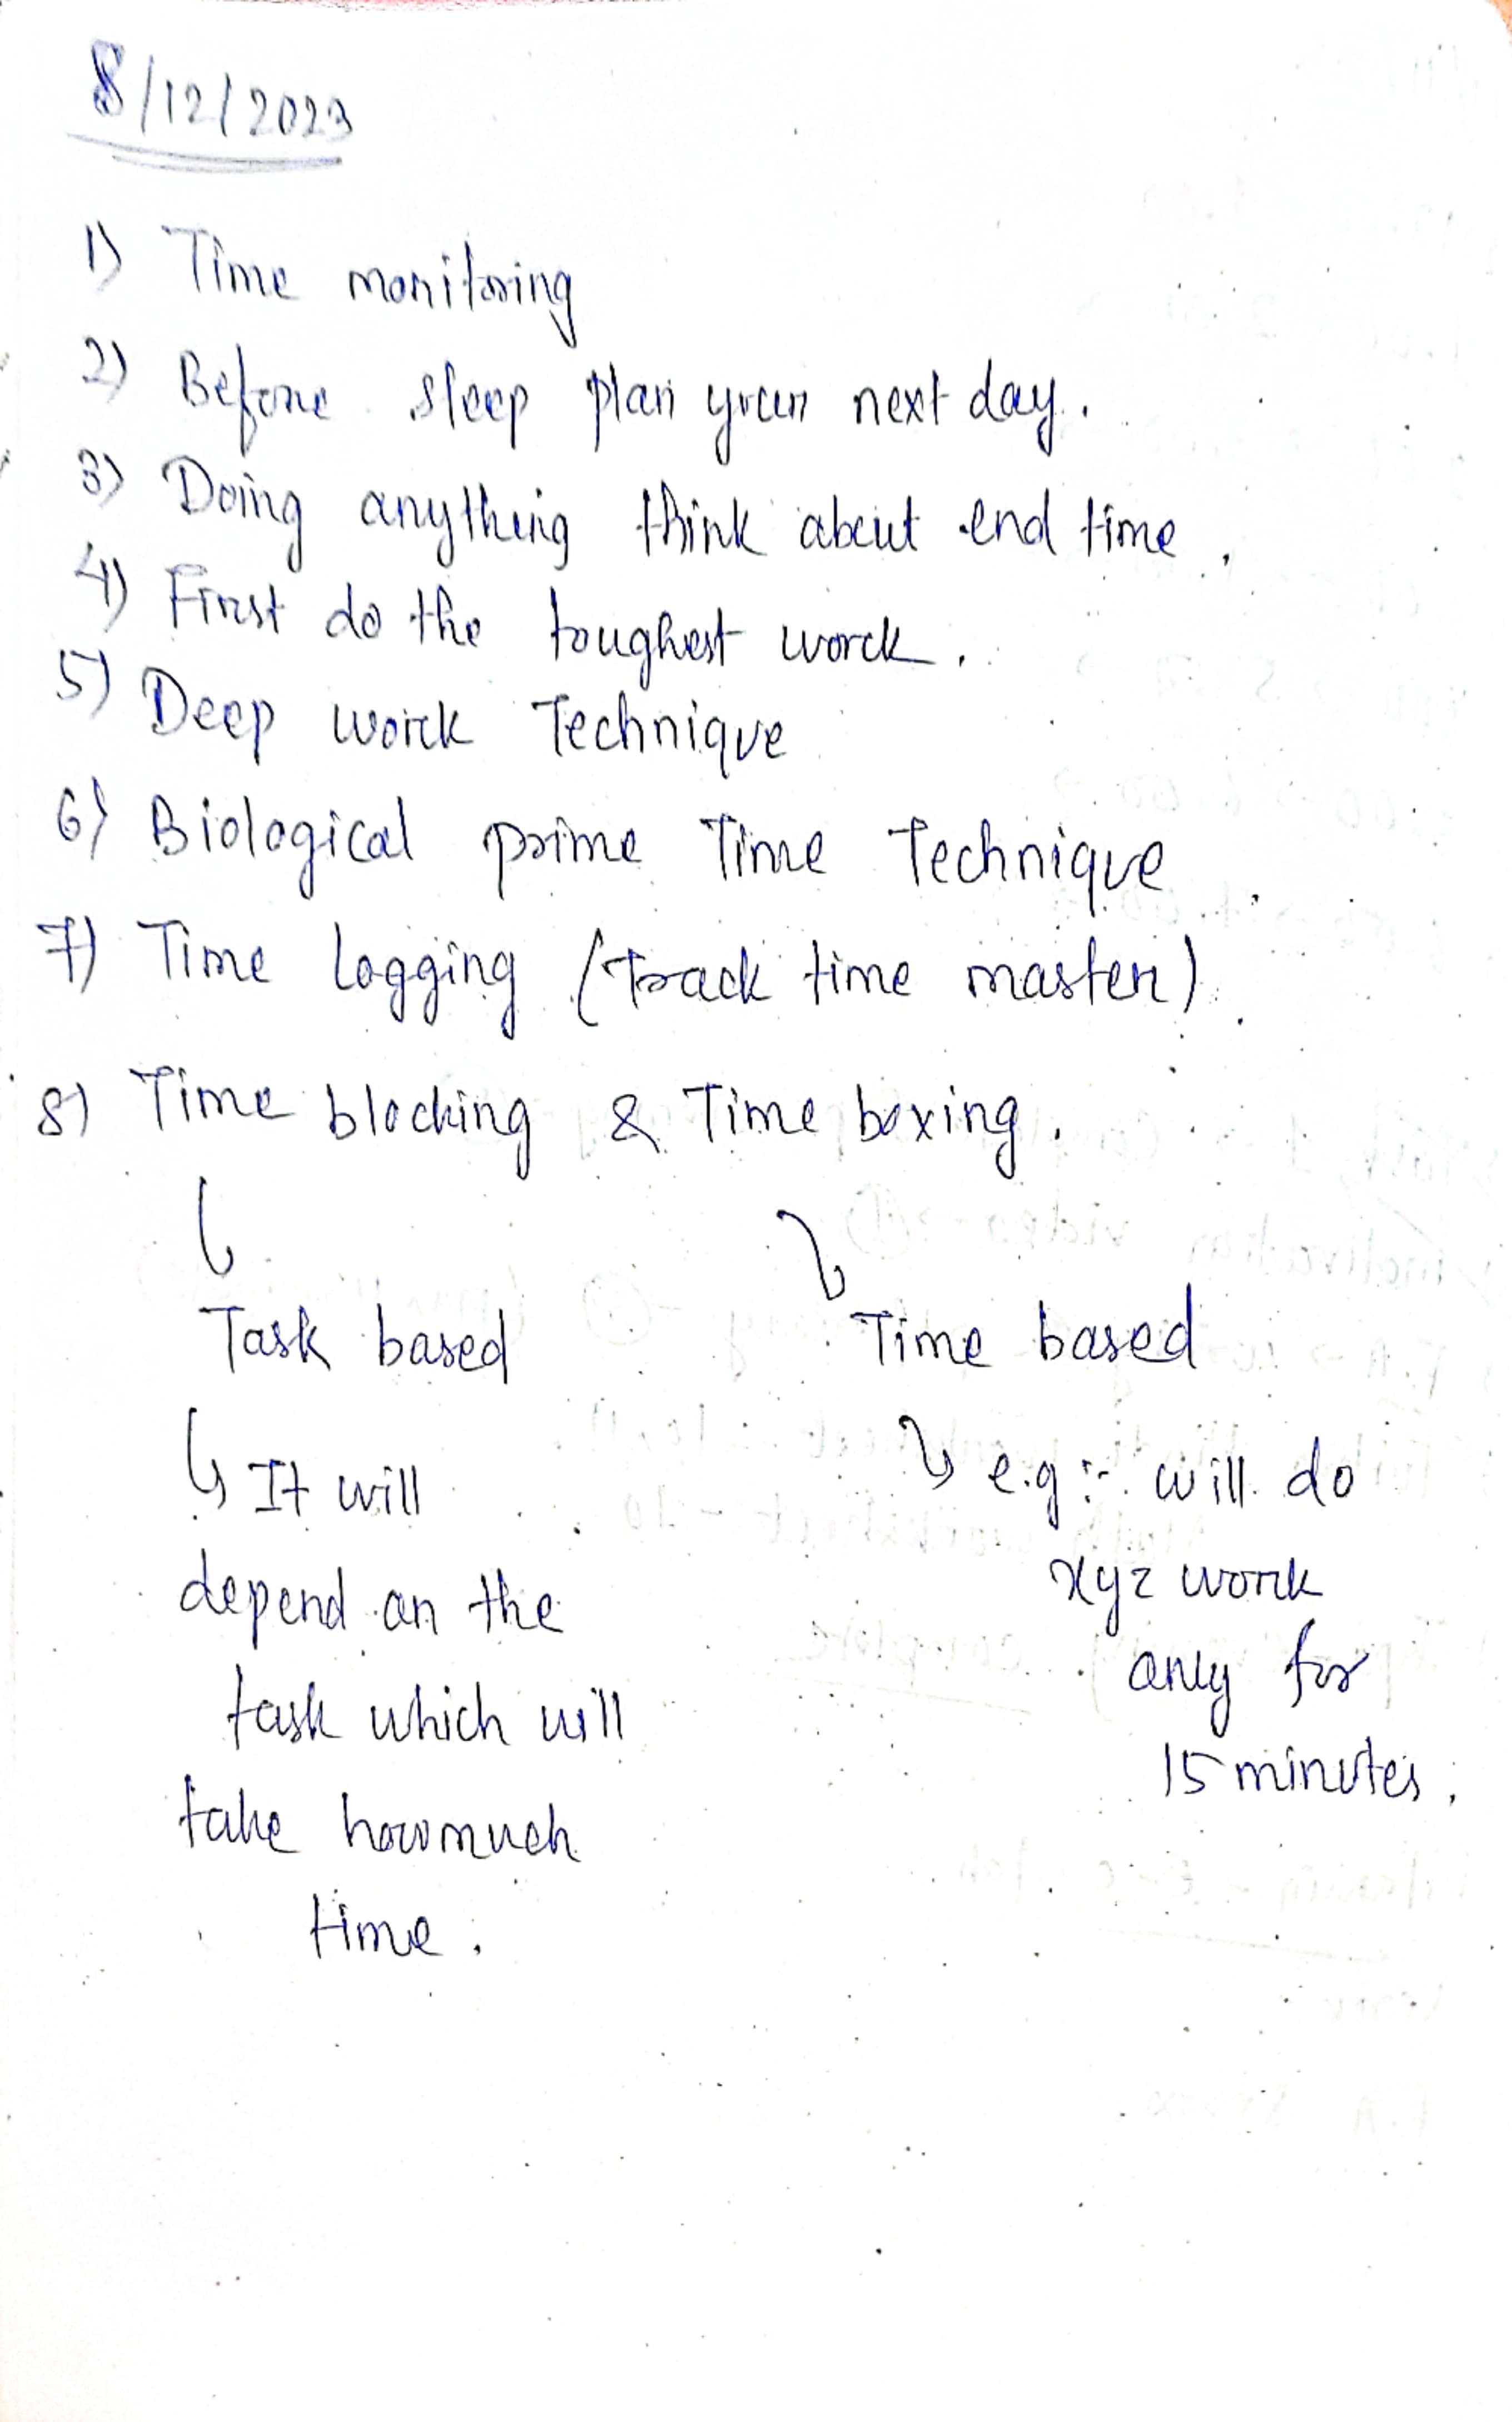 8/12/2023
1) Time monitoring
2) Before sleep plan your next day.
3) Doing anything think about end time.
4) First do the toughest work.
5) Deep work Technique
6) Biological prime Time Technique
7) Time logging (Track time master).
8) Time blocking & Time boxing.
Task based
Time based
↳ It will
depend on the
task which will
take howmuch
time.
↳ e.g :- will do
xyz work
only for
15 minutes.